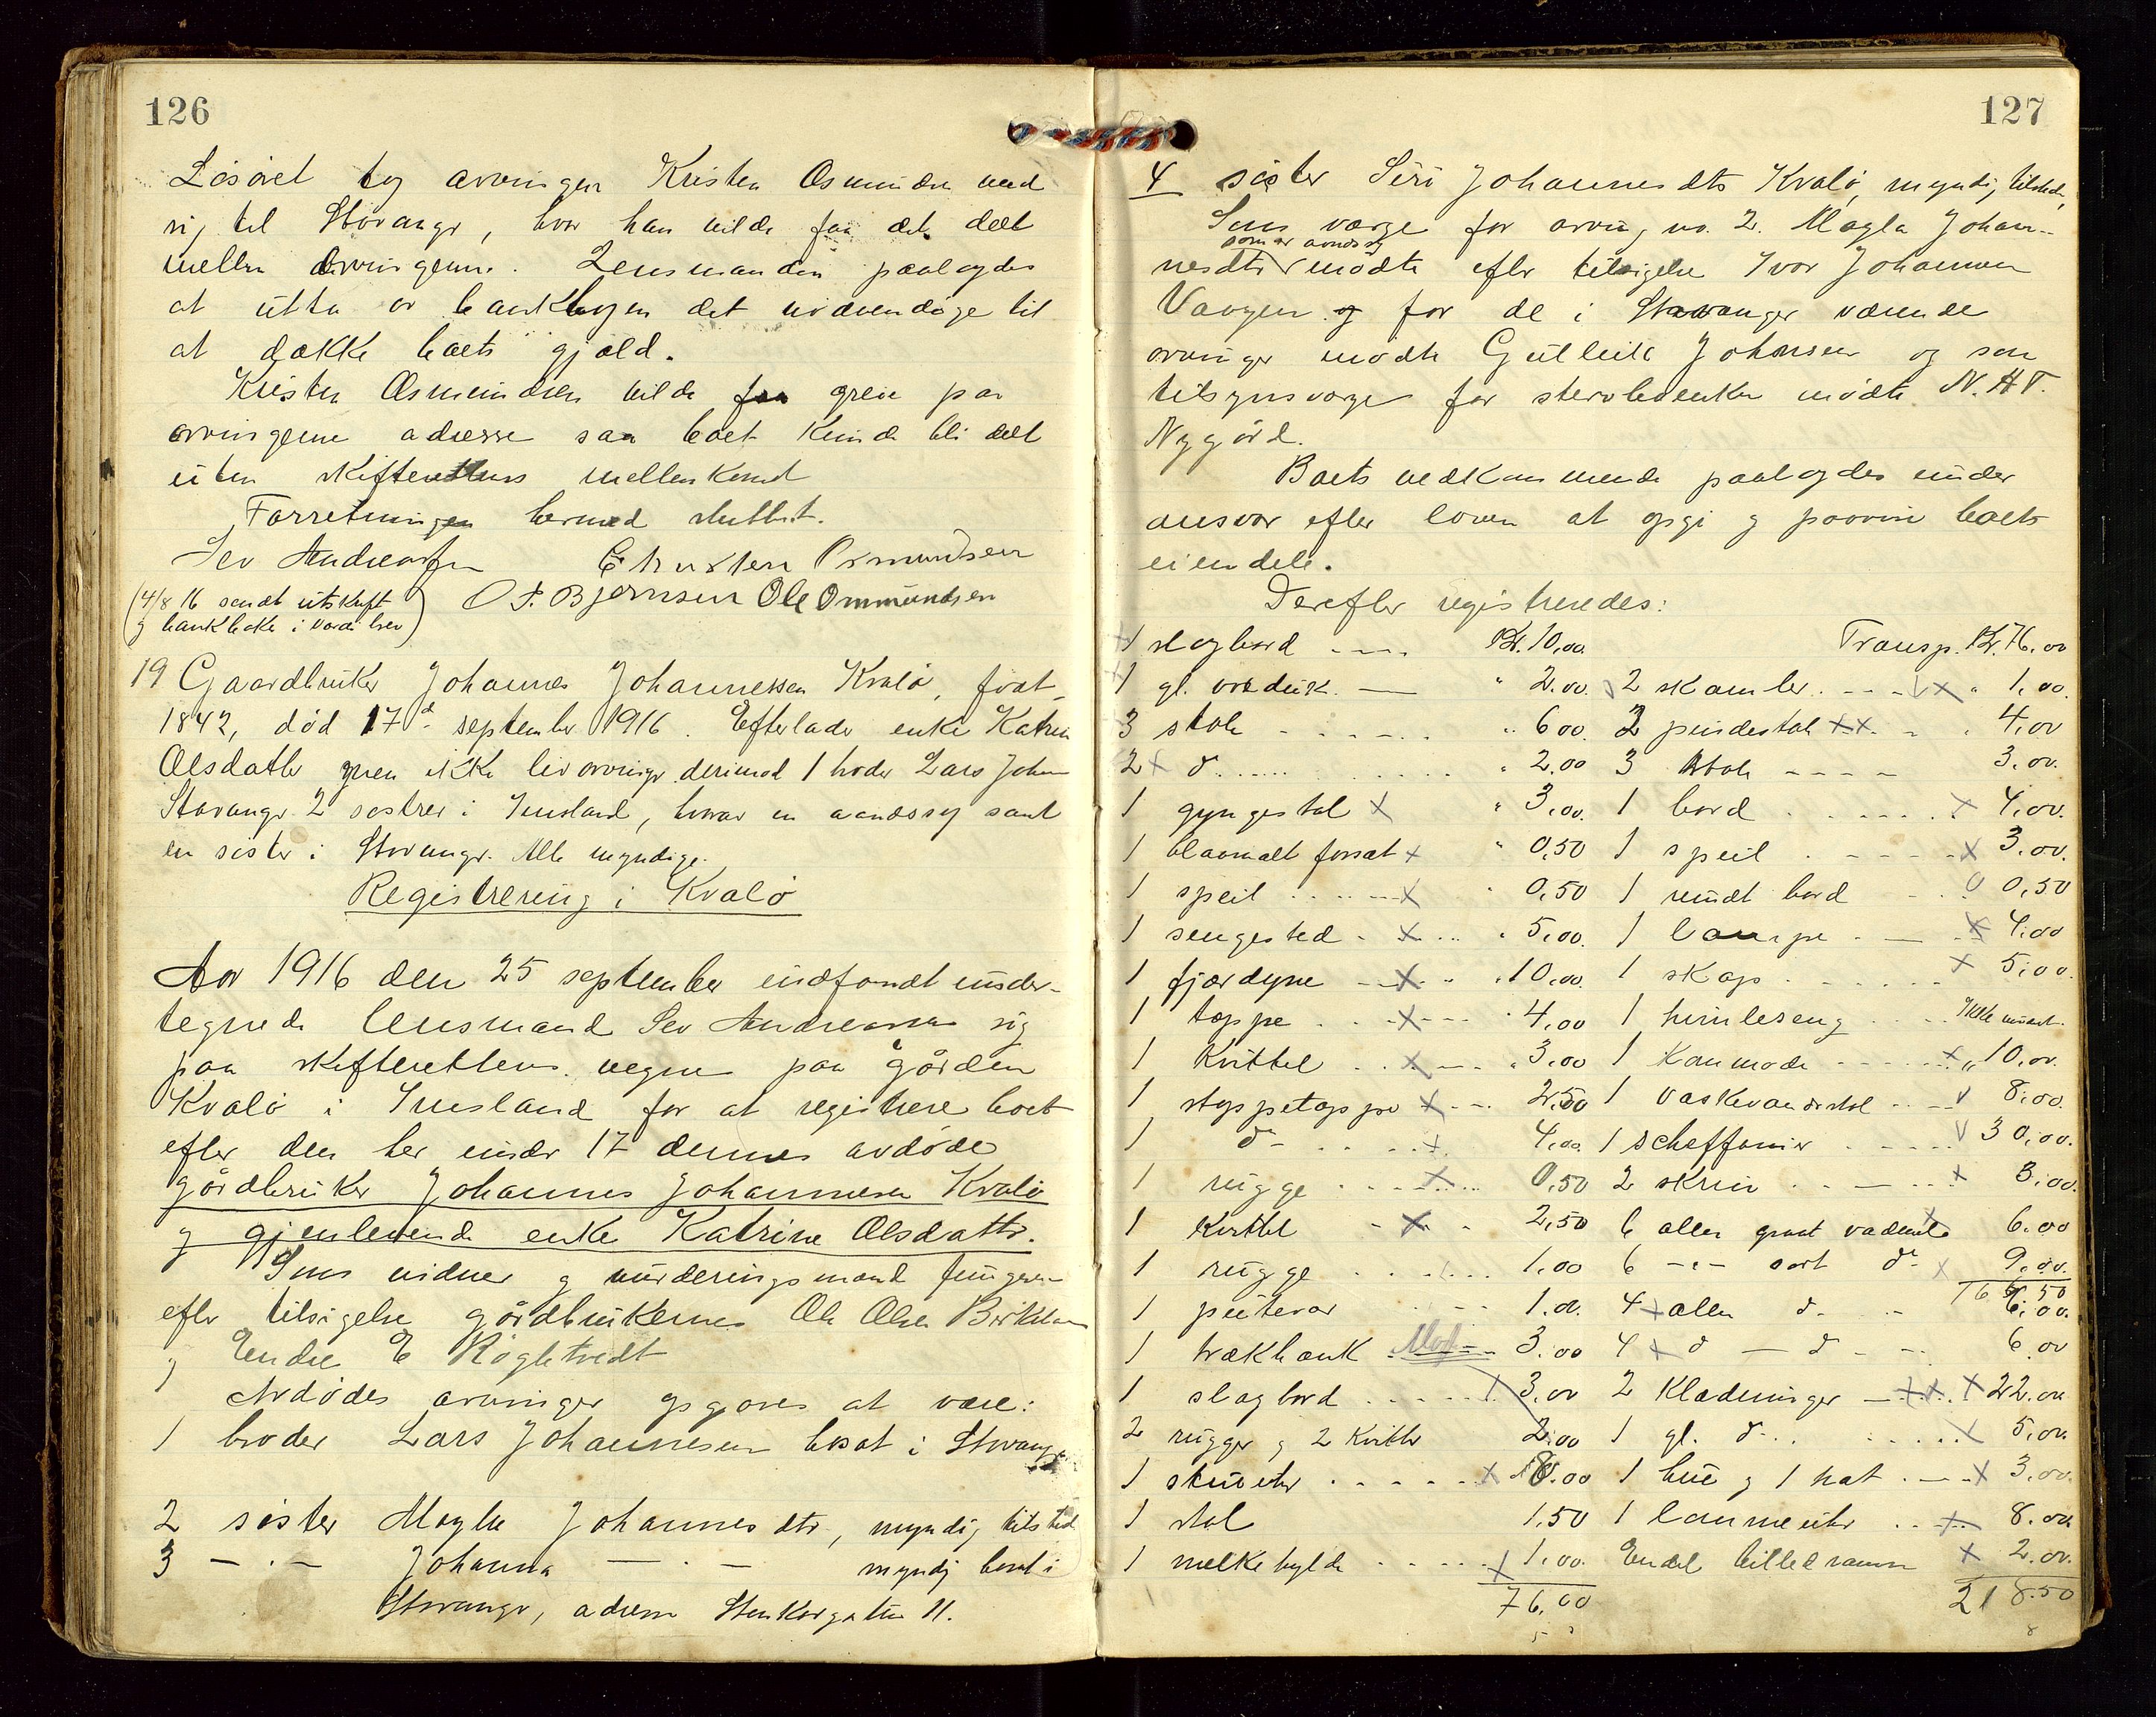 126
Løsøret tog arvingen Kristen Osmundsen med
sig til Stavanger, hvor han vilde faa det delt
mellem arvingerne. Lensmanden paalagdes
at utta av bankbogen det nødvendige til
at dække boets gjæld.
Kristen Osmundsen vilde faa greie paa
arvingerne adresse saa boet kunde bli delt
uten skifterettens mellemkomst
Forretningen hermed sluttet.
Sev Andreassen Christen Osmundsen
(14/8 16 sendt utskrift
og bankboken i værdibrev)
O T. Bjørnsen Ole Ommundsen
19 Gaardbruker Johannes Johannessen Kvalø, født
1842, død 17d september 1916. Efterlader enke Katrine
Olsdatter men ikke livarvinger derimod 1 broder Lars Johan
Stavanger 2 søstrer i Imsland, hvorav en aandssyg samt
en søster i Stavanger. Alle myndige.
Registrering i Kvalø
Aar 1916 den 25 september indfandt under-
tegnede lensmand Sev Andreassen sig
paa skifterettens vegne paa gården
Kvalø i Imsland for at registrere boet
efter den her under 17 dennes avdøde
gårdbruker Johannes Johannessen Kvalø
og gjenlevende enke Katrine Olsdatter.
Som vidner og vurderingsmænd fungerer
efter tilsigelse gårdbrukerne Ole Olsen Birkeland
og Endre E Røgletvedt
Avdødes arvinger opgaves at være:
1 broder Lars Johannessen bosat i Stavanger
2 søster Magla Johannesdtr, myndig tilsted
3 - . - Johanna - . - myndig bosat i
Stavanger, adresse Stenkargaten 11.
127
4 søster Siri Johannesdtr Kvalø, myndig, tilstede,
Som værge for arving no. 2. Magla Johan-
som er aandssyg
nesdtr mødte efter tilsigelse Ivar Johannesen
Vaagen og for de i Stavanger værende
arvinger mødte Gulleik Johnsen og som
tilsynsværge for stervboenken mødte N. H T.
Nygård.
Boets vedkommende paalagdes under
ansvar efter loven at opgi og paavise boets
eiendele.
Derefter registreredes:
1 slagbord ---- Kr. 10,00 Transp. Kr. 76,00
1 gl. voxduk. — " 2.00. 2 skamler. - - - x " 1,00.
3 stole - - - - - " 6 00. 2 pindestole xx - " 4,00
2 x do....... " 2,00 3 stole ---- 3,00.
1 gyngestol x " 3,00. 1 bord ..... x 4,00.
1 blaamalt forsat x " 0,50 1 speil . - - - - x 3,00.
1 speil ..... x " 0,50 1 rundt bord - . 0,50
1 sengested - x ... " 5,00. 1 lampe . — x 4,00
1 fjærdyne - - x - " 10,00. 1 skap ...... x 5,00.
1 tæppe . . . x - - - " 4,00 1 himleseng .... Ikke vurdert.
1 Kvittel . . . x - - " 3,00 1 Kommode ...... x " 10,00.
1 stoppetæppe x - - 2,50 1 vaskevandsstol .. - v 8,00.
1 do- . . . . x 4,00 1 scheffonier ..... v 30,00.
1 rugge ..... x .... 0,50 2 skrin - - — .. x 3,00.
1 Kvittel - x . - 2,50 6 alen graat vadmel x 6.00
1 rugge ...... 1,00 6 -"- sort do x 9,00.
166,50
1 putevar - - - 1.00. 4 x alen do - - - 6,00.
1 trækbænk - - 3.00 4 x do — do - - - 6.00
1 slagbord ..... 3,00 2 Klædninger — xx. x 22.00
2 rugger og 2 Kvitler 2,00 1 gl. do... ..... x 5,00.
1 stueuhr ..... x 8.00 1 hue og 1 hat . — x 3,00.
1 stol 1,50 1 lommeuhr ... x 8.00
1 melkehylde ..... x 1,00. Endel billedrammer x 2.00.
76,00 218.50